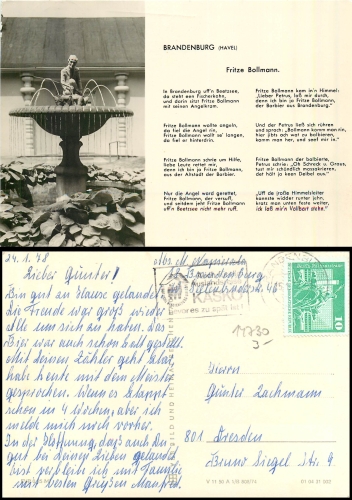 BRANDENBURG (HAVEL)
Fritze Bollmann.
In Brandenburg uff'n Beetzsee,
da steht een Fischerkahn,
und darin sitzt Fritze Bollmann
mit seinen Angelkram.
Fritze Bollmann wollte angeln,
da fiel die Angel rin,
Fritze Bollmann wollt se' langen,
da fiel er hinterdrin.
Fritze Bollmann schrie um Hilfe,
liebe Leute rettet mir,
denn ich bin ja Fritze Bollmann,
aus der Altstadt der Barbier.
Nur die Angel ward gerettet,
Fritze Bollmann, der versuff,
und seitdem jeht Fritze Bollmann
uff'n Beetzsee nicht mehr ruff.
Fritze Bollmann kam in'n Himmel:
"Lieber Petrus, laß mir durch,
denn ich bin jo Fritze Bollmann,
der Barbier aus Brandenburg."
Und der Petrus ließ sich rühren
und sprach: "Bollmann komm man rin,
hier jibts ach wat zu balbieren,
komm man her, und seef mir in."
Fritze Bollmann der balbierte,
Petrus schrie: "Oh Schreck u. Graus,
tust mir schändlich massakrieren,
det hält jo keen Deibel aus."
"Uff de jroße Himmelsleiter
kannste wieder runter jehn,
kratz man unten feste weiter,
ick laß mir'n Vollbart stehn."
24.1.78
Lieber Günter!
Bin gut zu Hause gelandet.
Die Freude war groß wieder
alle um sich zu haben. Das
Bier war auch schon kalt gestellt.
Mit deinen Zähler geht klar,
habe heute mit dem Meister
gesprochen. Wenn es klappt
schon in 4 Wochen, aber ich
melde mich noch vorher.
In der Hoffnung, daß auch Du
gut bei Deinen Lieben gelandet
bist verbleibe ich mit Familie
mit besten Grüßen Manfred
Abs. M.
Brandenburg
KASKO
eh' es zu spät ist!
10
11730
3-
Herrn
Günter Lachmann
801 Dresden
Bruno Siegel Str. 9
BILD UND HEIMAT